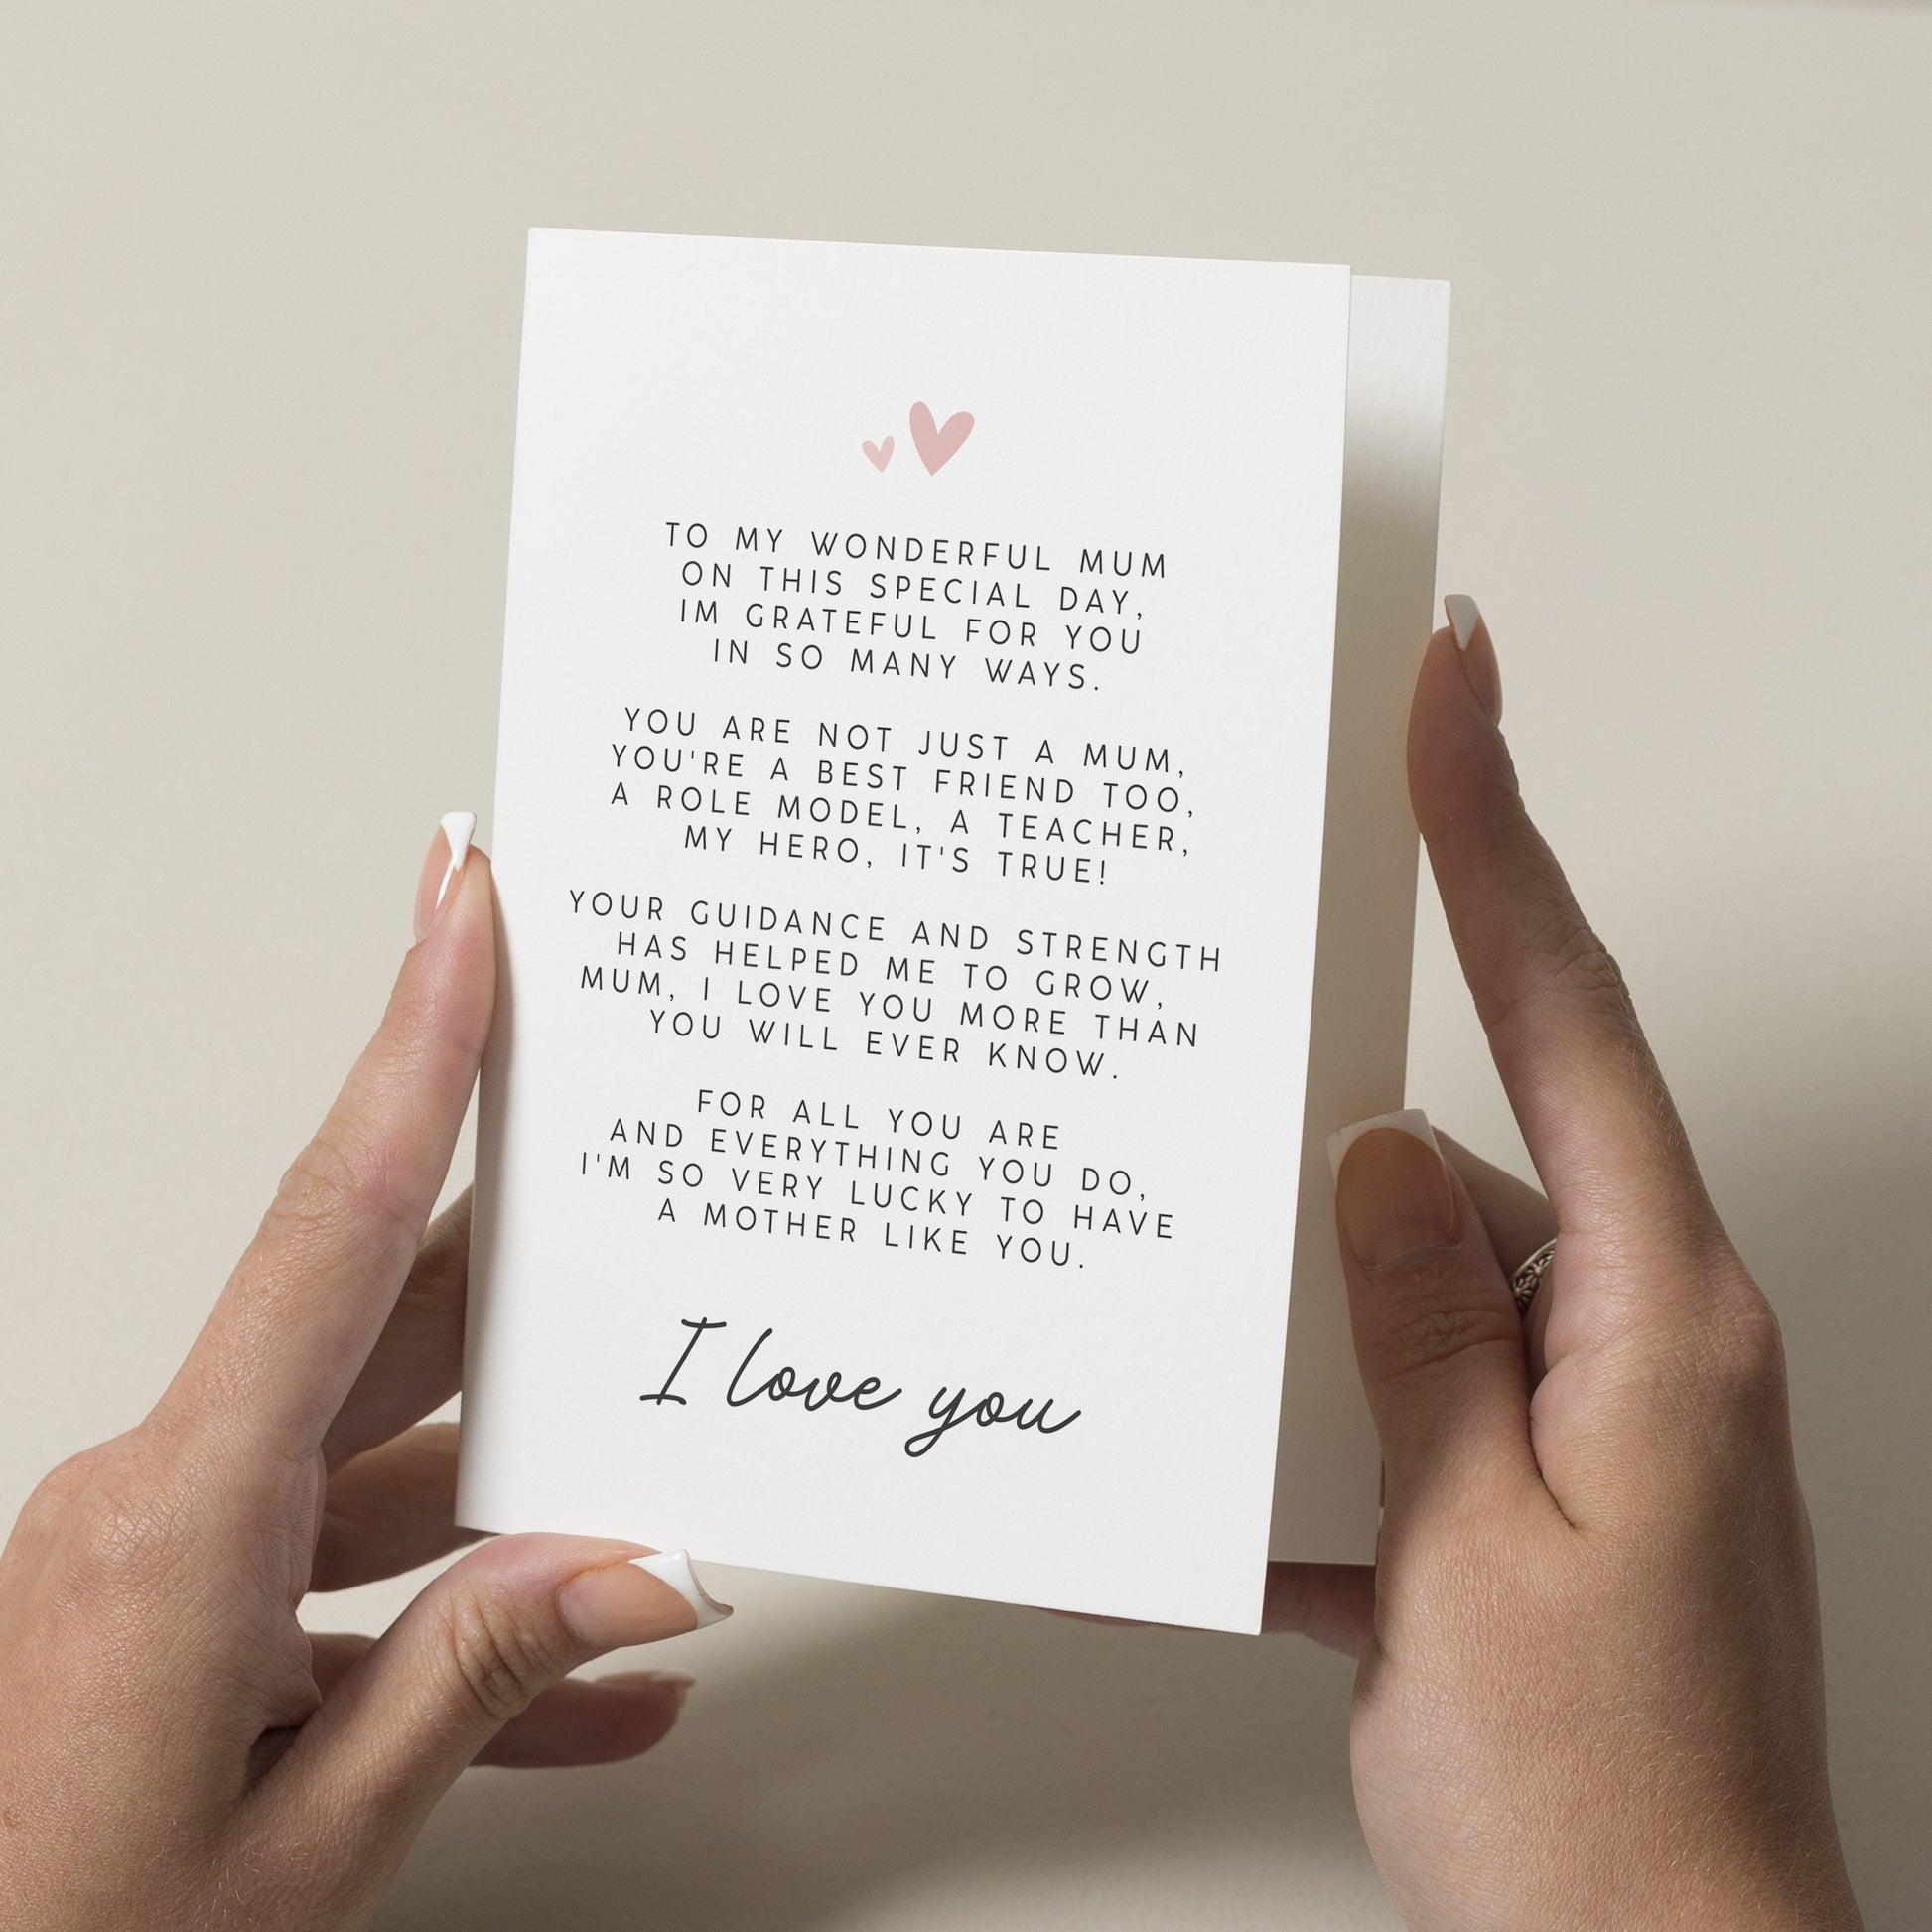 TO MY WONDERFUL MUM
ON THIS SPECIAL DAY,
IM GRATEFUL FOR YOU
IN SO MANY WAYS.
YOU ARE NOT JUST A MUM,
YOU'RE A BEST FRIEND TOO,
A ROLE MODEL, A TEACHER,
MY HERO, IT'S TRUE!
YOUR GUIDANCE AND STRENGTH
HAS HELPED ME TO GROW,
MUM, I LOVE YOU MORE THAN
YOU WILL EVER KNOW.
FOR ALL YOU ARE
AND EVERYTHING YOU DO,
I'M SO VERY LUCKY TO HAVE
A MOTHER LIKE YOU.
I love you